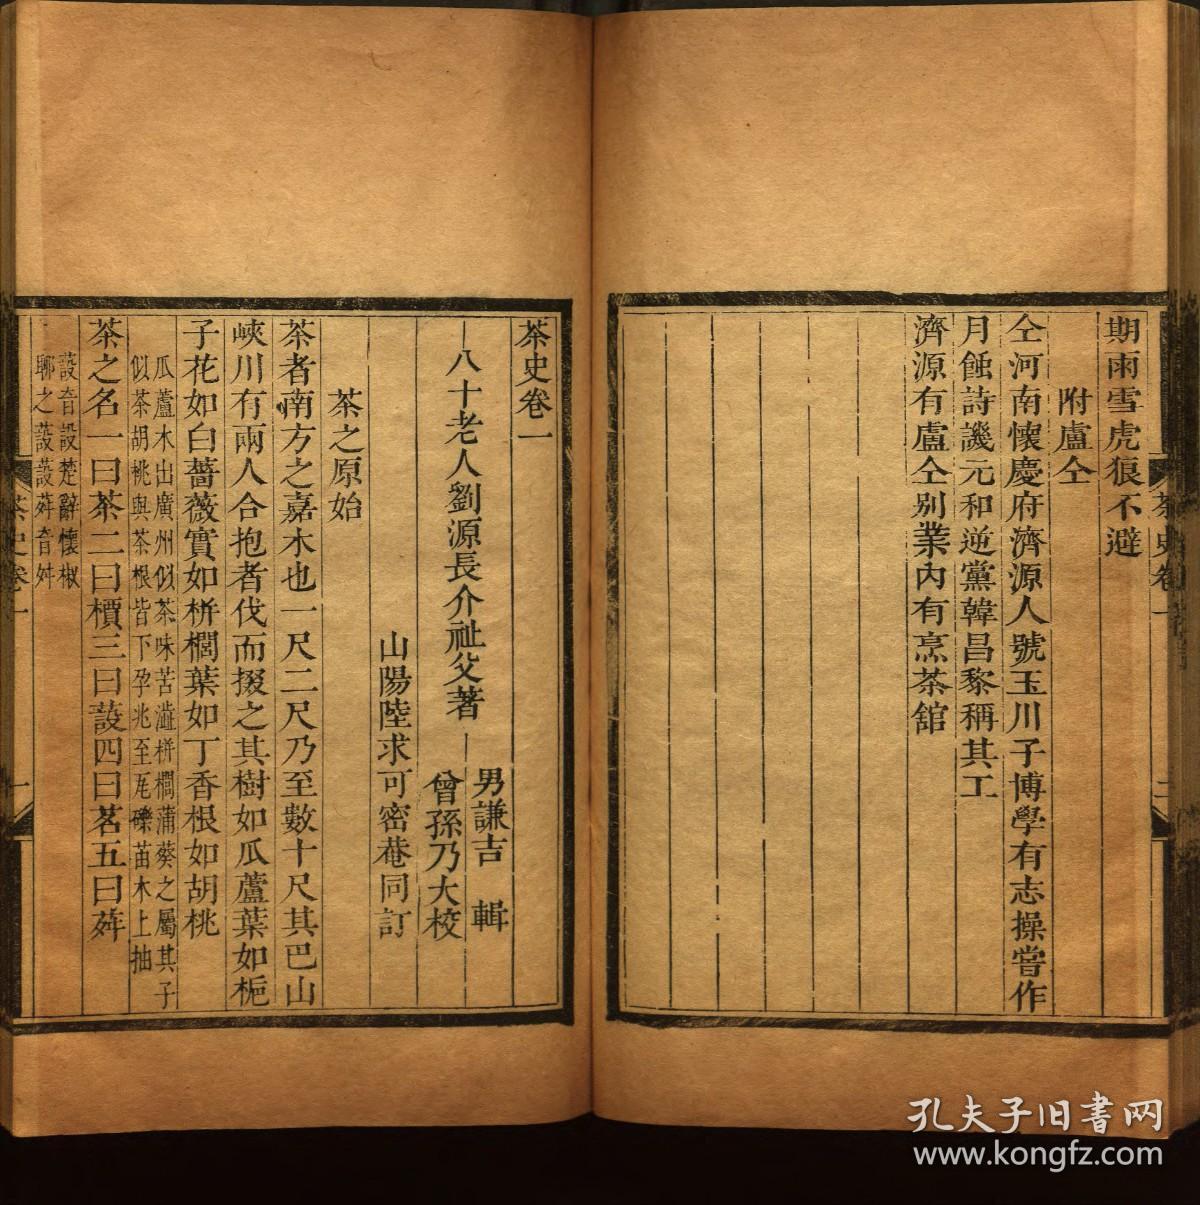 茶史卷一
二
期雨雪虎狼不避
附盧仝
仝河南懷慶府濟源人號玉川子博學有志操嘗作
月蝕詩譏元和逆黨韓昌黎稱其工
濟源有盧仝别業内有烹茶舘
茶史卷一
八十老人劉源長介祉父著
男謙吉 輯
曾孫乃大校
山陽陸求可密菴同訂
茶之原始
茶者南方之嘉木也一尺二尺乃至數十尺其巴山
峽川有兩人合抱者伐而掇之其樹如瓜蘆葉如梔
子花如白薔薇實如栟櫚葉如丁香根如胡桃
瓜蘆木出廣州似茶味苦澁栟櫚蒲葵之屬其子
似茶胡桃與茶根皆下孕兆至瓦礫苗木上抽
茶之名一曰茶二曰檟三曰蔎四曰茗五曰荈
蔎音設楚辭懷椒
聊之蔎蔎荈音舛
茶史卷一
一
孔夫子旧書网
www.kongfz.com